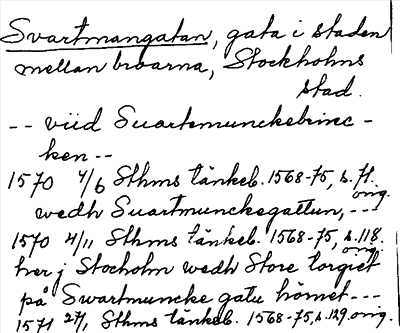 Svartmangatan, gata i staden
mellan broarna, Stockholms
stad.
-- viid Suartemunckebrinc-
ken--
1570 4/6 Sthms tänkeb. 1568-75, s. 71.
orig.
wedh Suartmunckegattun,---
1570 4/11 Sthms tänkeb. 1568-75, s. 118.
orig.
her j Stocholm wedh Store torgiett
på Swartmuncke gatu hörnet---
1571 27/1 Sthms tänkeb. 1568-75, s. 129 orig.